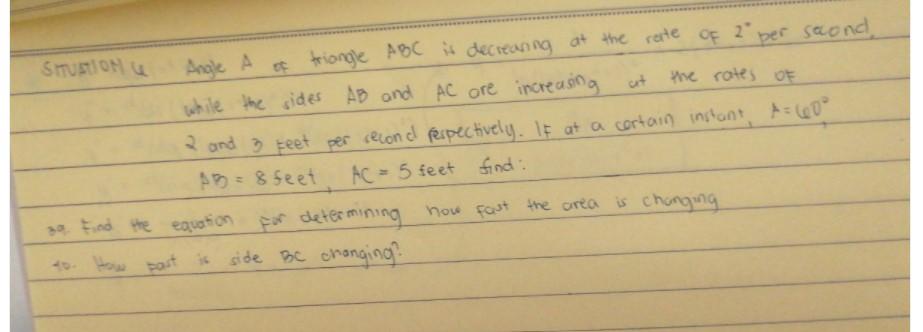 SITUATION 4 Angle A of triangle ABC is decreasing at the rate of 2° per second,
while the sides AB and AC are increasing at the rates of
2 and 3 feet per second respectively. If at a certain instant, A = 60°,
AB = 8 feet, AC = 5 feet find:
39. Find the equation for determining how fast the area is changing
40. How fast is side BC changing?